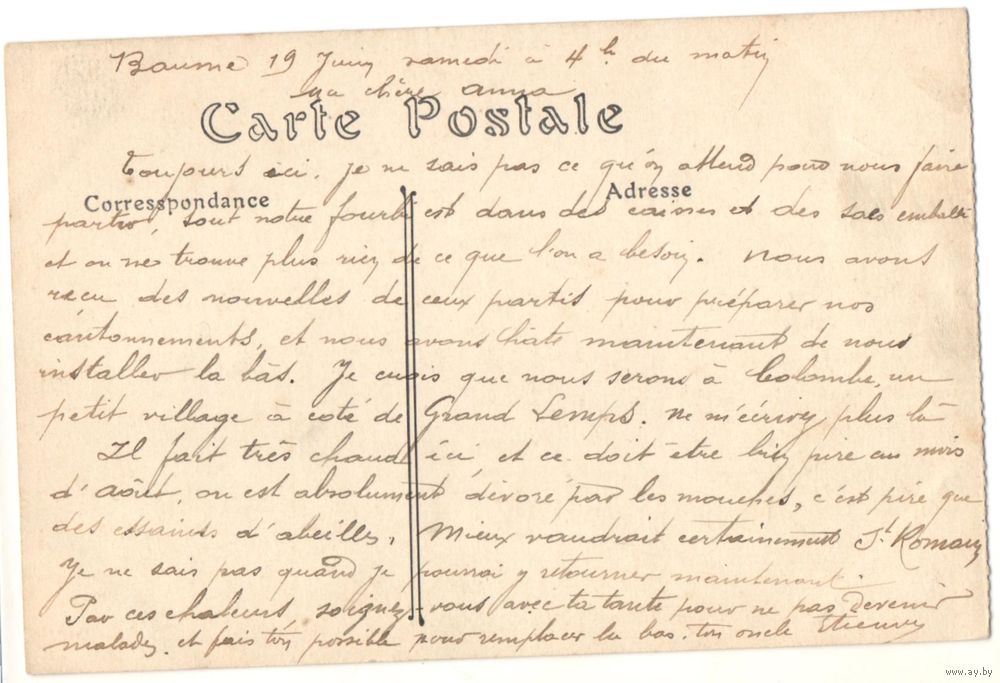 Baume 19 Juin samedi à 4h. du matin
ma chère Anna
Carte Postale
Toujours ici. je ne sais pas ce qu'on attend pour nous faire
Correspondance
Adresse
partir, tout notre fourbi est dans des caisses et des sacs emballé
et on ne trouve plus rien de ce que l'on a besoin. nous avons
reçu des nouvelles de ceux partis pour préparer nos
cantonnements, et nous avons hâte maintenant de nous
installer la bàs. Je crois que nous serons à Colombe, un
petit village à coté de Grand Lemps. ne m'écrivez plus là
Il fait très chaud ici, et ce doit être bien pire au mois
d'août, on est absolument dévoré par les mouches, c'est pire que
des essaims d'abeilles. Mieux vaudrait certainement St Romain
Je ne sais pas quand je pourrai y retourner maintenant.
Par ces chaleurs, soignez-vous avec ta tante pour ne pas devenir
malades. et fais ton possible pour remplacer la bas. ton oncle Etienne
www.ay.by